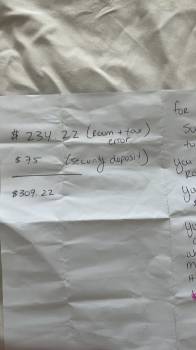 $ 234.22 (Room + tax)
error
$ 75 (security deposit)
$309.22
for
Su
to
You
Yo
yo
m